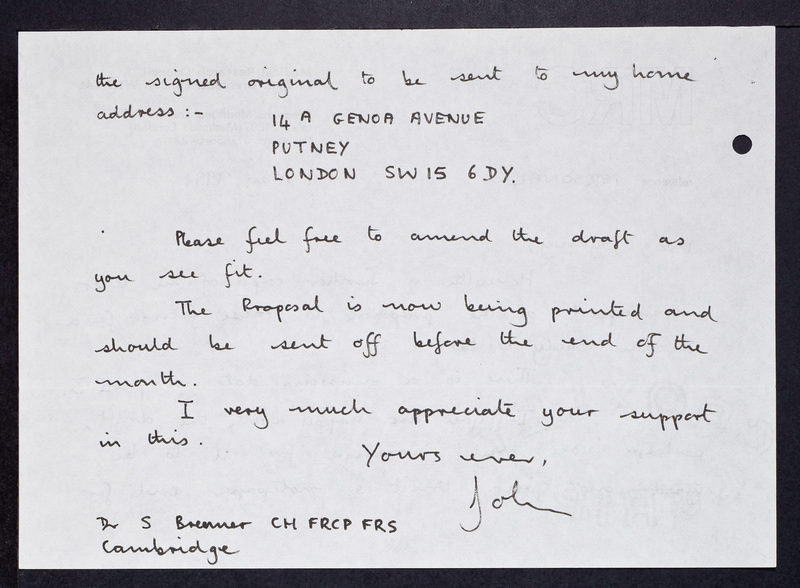 the signed original to be sent to my home
address :-
14 A GENOA AVENUE
PUTNEY
LONDON SW15 6DY.
Please feel free to amend the draft as
you see fit.
The Proposal is now being printed and
should be sent off before the end of the
month.
I very much appreciate your support
in this.
Yours ever,
John
Dr S Brenner CH FRCP FRS
Cambridge